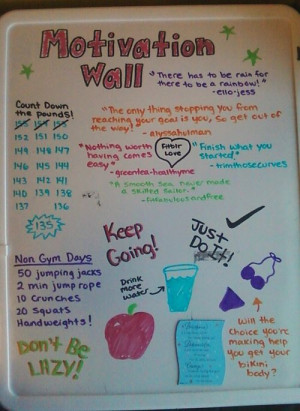 Motivation
Wall
"There has to be rain for
there to be a rainbow!"
-ello-jess
Count Down
the pounds!
155 154 153
152 151 150
149 148 147
146 145 144
143 142 141
140 139 138
137 136
135
"The only thing stopping you from
reaching your goal is you, so get out of
the way!"
"Nothing worth
having comes
easy"
-greentea-healthyme
Fitblr
Love
"Finish what you
started"
-trimthosecurves
"A smooth sea never made
a skilled sailor."
-fitfabulousandfree
Keep
Going!
JUST
DO IT!
Drink
more
water
Non Gym Days
50 jumping jacks
2 min jump rope
10 Crunches
20 Squats
Handweights!
Don't Be
LAZY!
Will the
choice you're
making help
you get your
bikini
body?